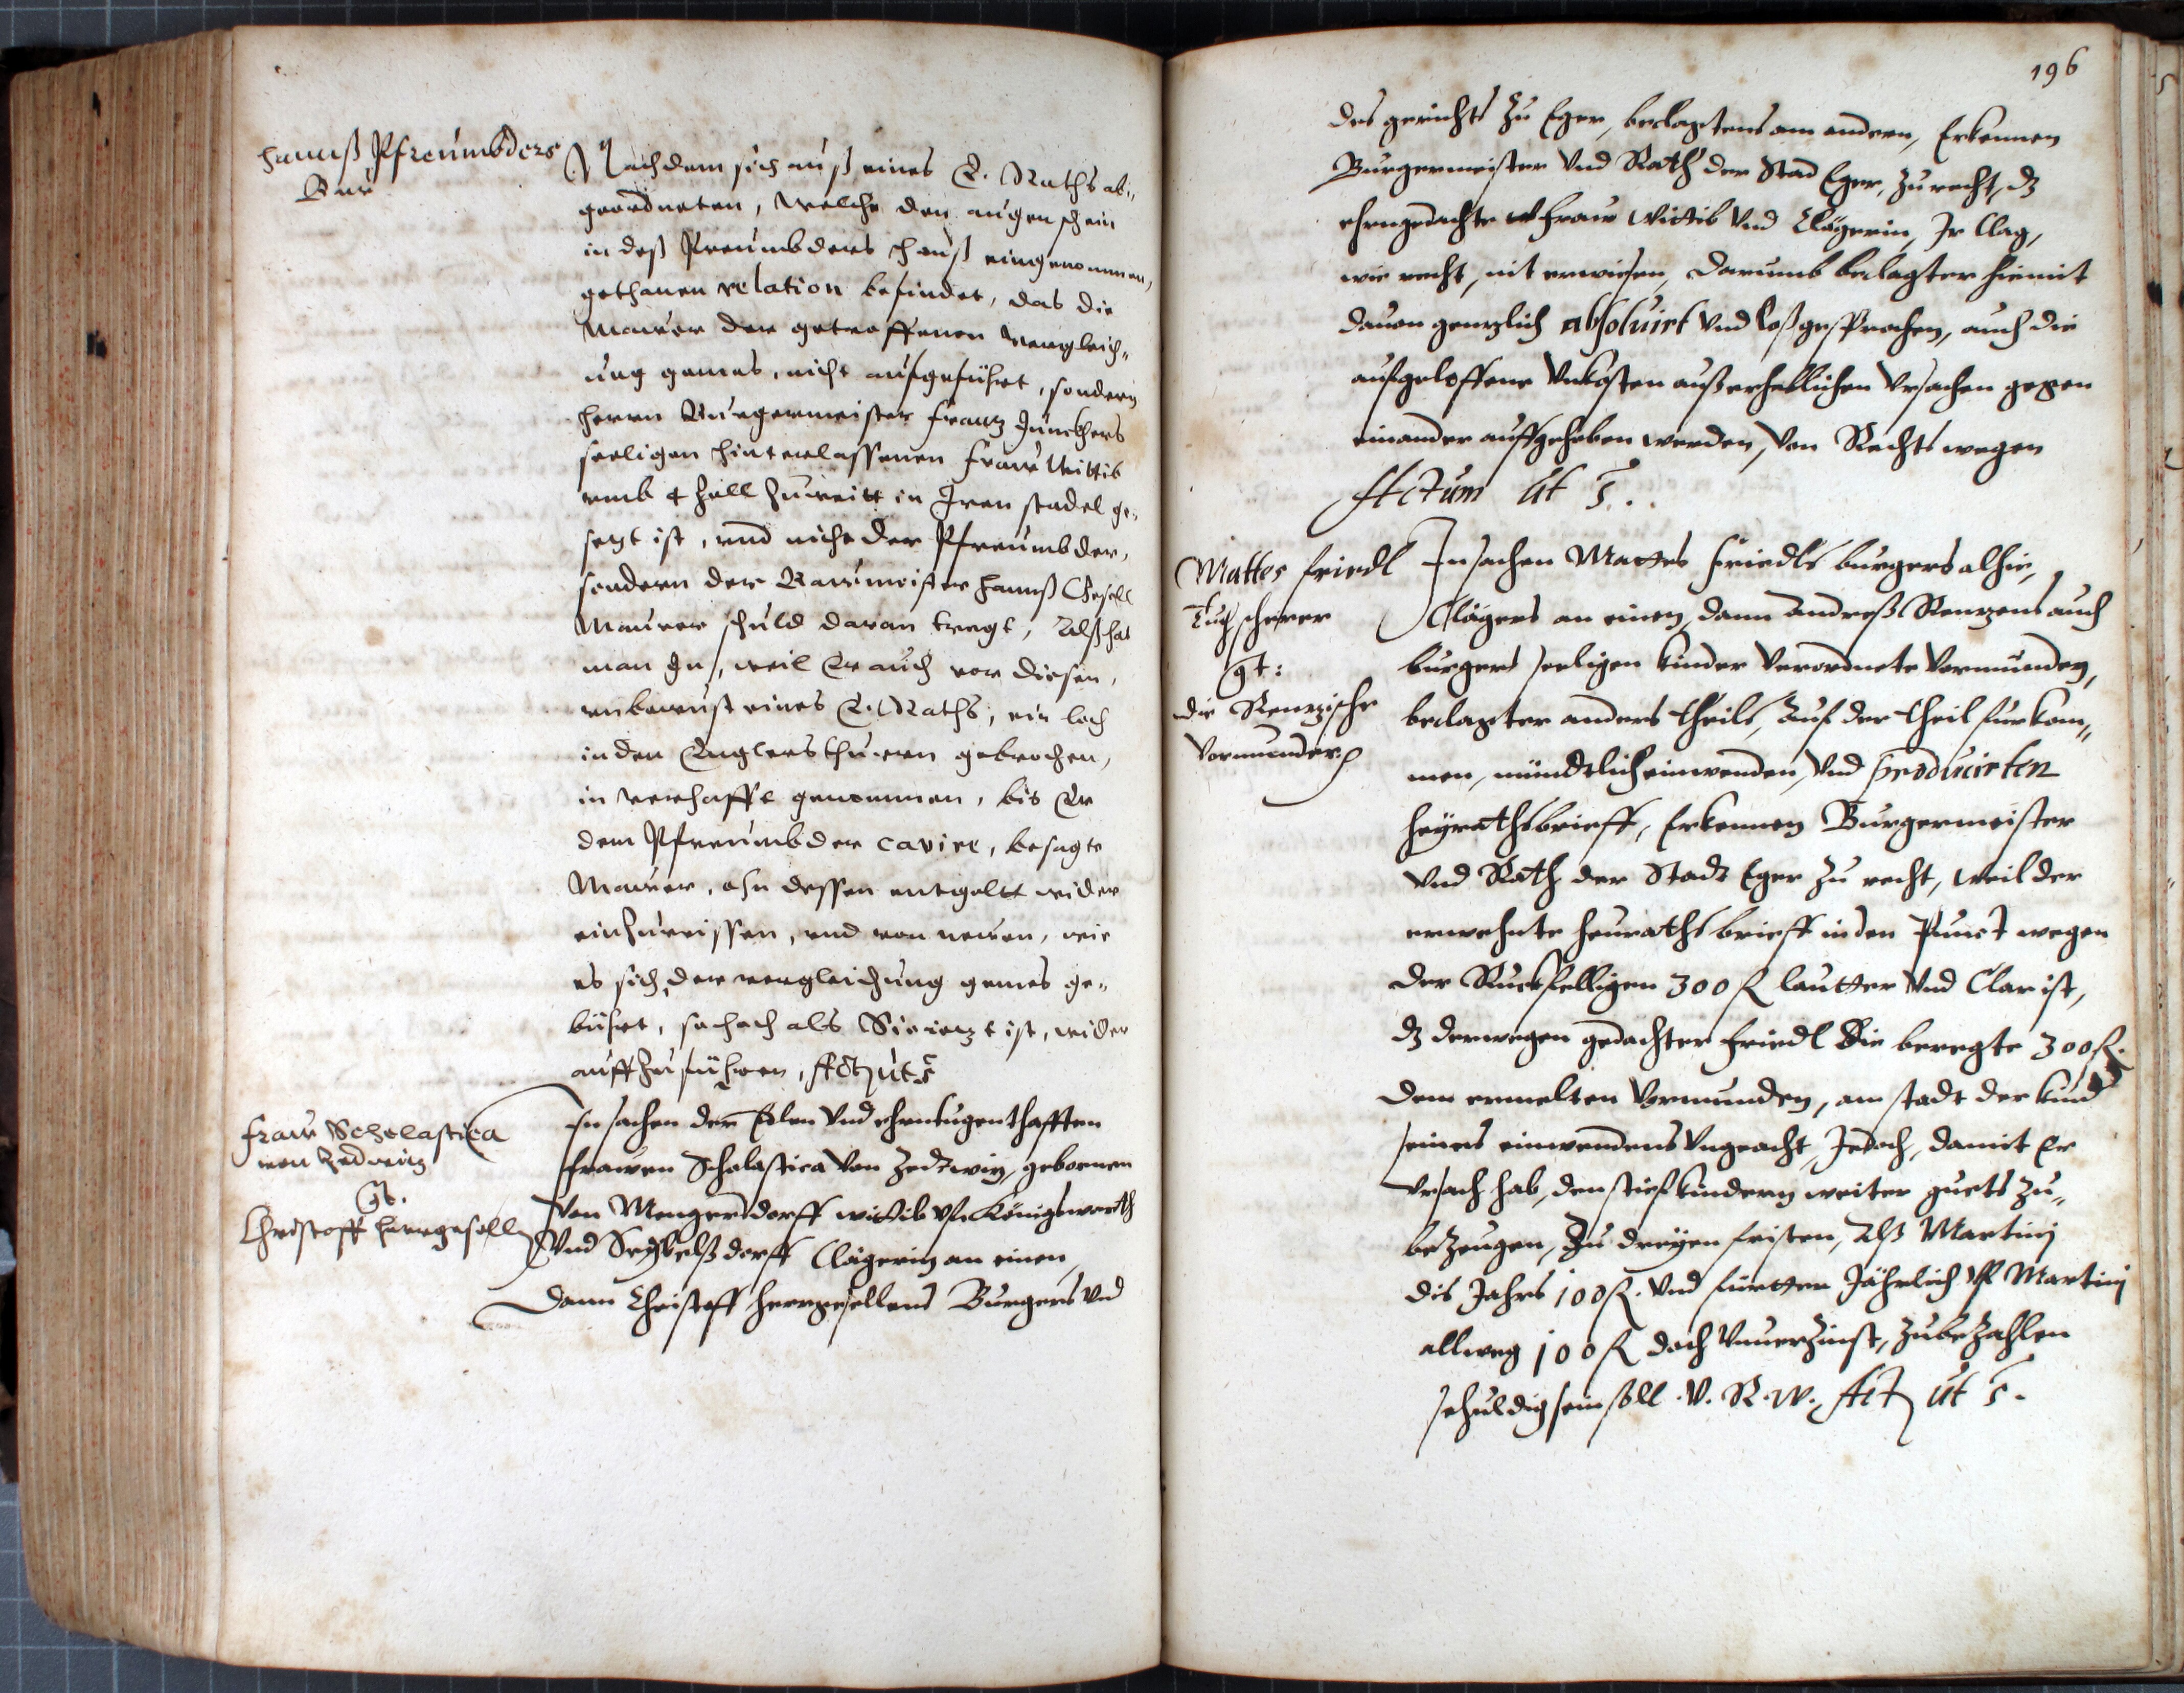 Hannß Pfreumbders
Bau
Nachdem sich auß eines E. Raths ab„
geordneten, welche den augenschein
in deß Pfreumbders hauß eingenommen,
gethanen relation befindet, das die
Mauer der getroffenen vergleich„
ung gemes, nicht aufgeführt, sondern
herrn Burgermeister Frantz Junckhers
seeligen hinterlassenen Frau Wittib
umb 4 Zoll zuweitt in Iren stadel ge„
setzt ist, und nicht der Pfreumbder,
sondern der Baumeister Hannß Gesell
Maurer schuld daran tregt, Alß hat
man Jn, weil Er auch vor diesen,
unbewust eines E. Raths, ein loch
in den thurrn gebrochen,
in verhafft genommen, bis Er
dem Pfreumbder cavire, besagte
Mauer, ohn dessen entgellt wider
einzureissen, und von neuen, wie
es sich der vergleichung gemes ge„
bührt, so hoch als Sie jetzt ist, wider
auffzuführen, Act ut s
Frau Scholastica
von Zedwitz
gt.
Christoff Herrgesell
In sachen der Edlen Vnd ehrntugenthafften
Frawen Scholastica Von Zedtwitz, gebornen
Von Mengersdorff wittib vf Königswarth
Vnd Clägerin an einen,
Dann Christoff Herrgesellens Burgers Vnd
196
des gerichts zu Eger, beclagtens am andern, Erkennen
Burgermeister Vnd Rath der Stad Eger, zu recht, dz
ehrngedachte Frau Wittib Vnd Clägerin, Ir Clag,
wie recht, nit erwiesen, darumb beclagter hiemit
dauon gentzlich absoluirt Vnd loßgesprochen, auch die
aufgeloffene Vnkosten auß erheblichen Vrsachen gegen
einander auffgehoben werden, Von Rechts wegen
Actum ut s.
Mattes Friedl
Tuchscherer
gt:
die Rentzische
Vormunder
In sachen Mattes Friedls burgers alhie,
Clägers an einen, dann Andreß Rentzens auch
burgers seeligen kinder Verordnete Vormunden,
beclagter anders theils, Auf der theil furkom„
men, mündtlich einwenden, Vnd producirten
heyrathsbrieff, Erkennen Burgermeister
Vnd Rath der Stadt Eger zu recht, weil der
erwehnte heurathsbrieff in den Punct wegen
der Ruckfelligen 300 fl lautter Vnd Clar ist,
dz derwegen gedachter Friedl die beregte 300 fl.
dem ermelten Vormunden, an stadt der kind
seines einwendens Vngeacht, Jedoch, damit Er
Vrsach hab, den stiefkindern weiter guets zu„
bezeugen, Zu dreyen fristen, Alß Martinj
dis Jahrs 100 fl. Vnd furtter Jährlich vf Martinj
allweg 100 fl doch Vnuerzinst, zubezahlen
schuldig sein soll. V. R. w. Act ut s.